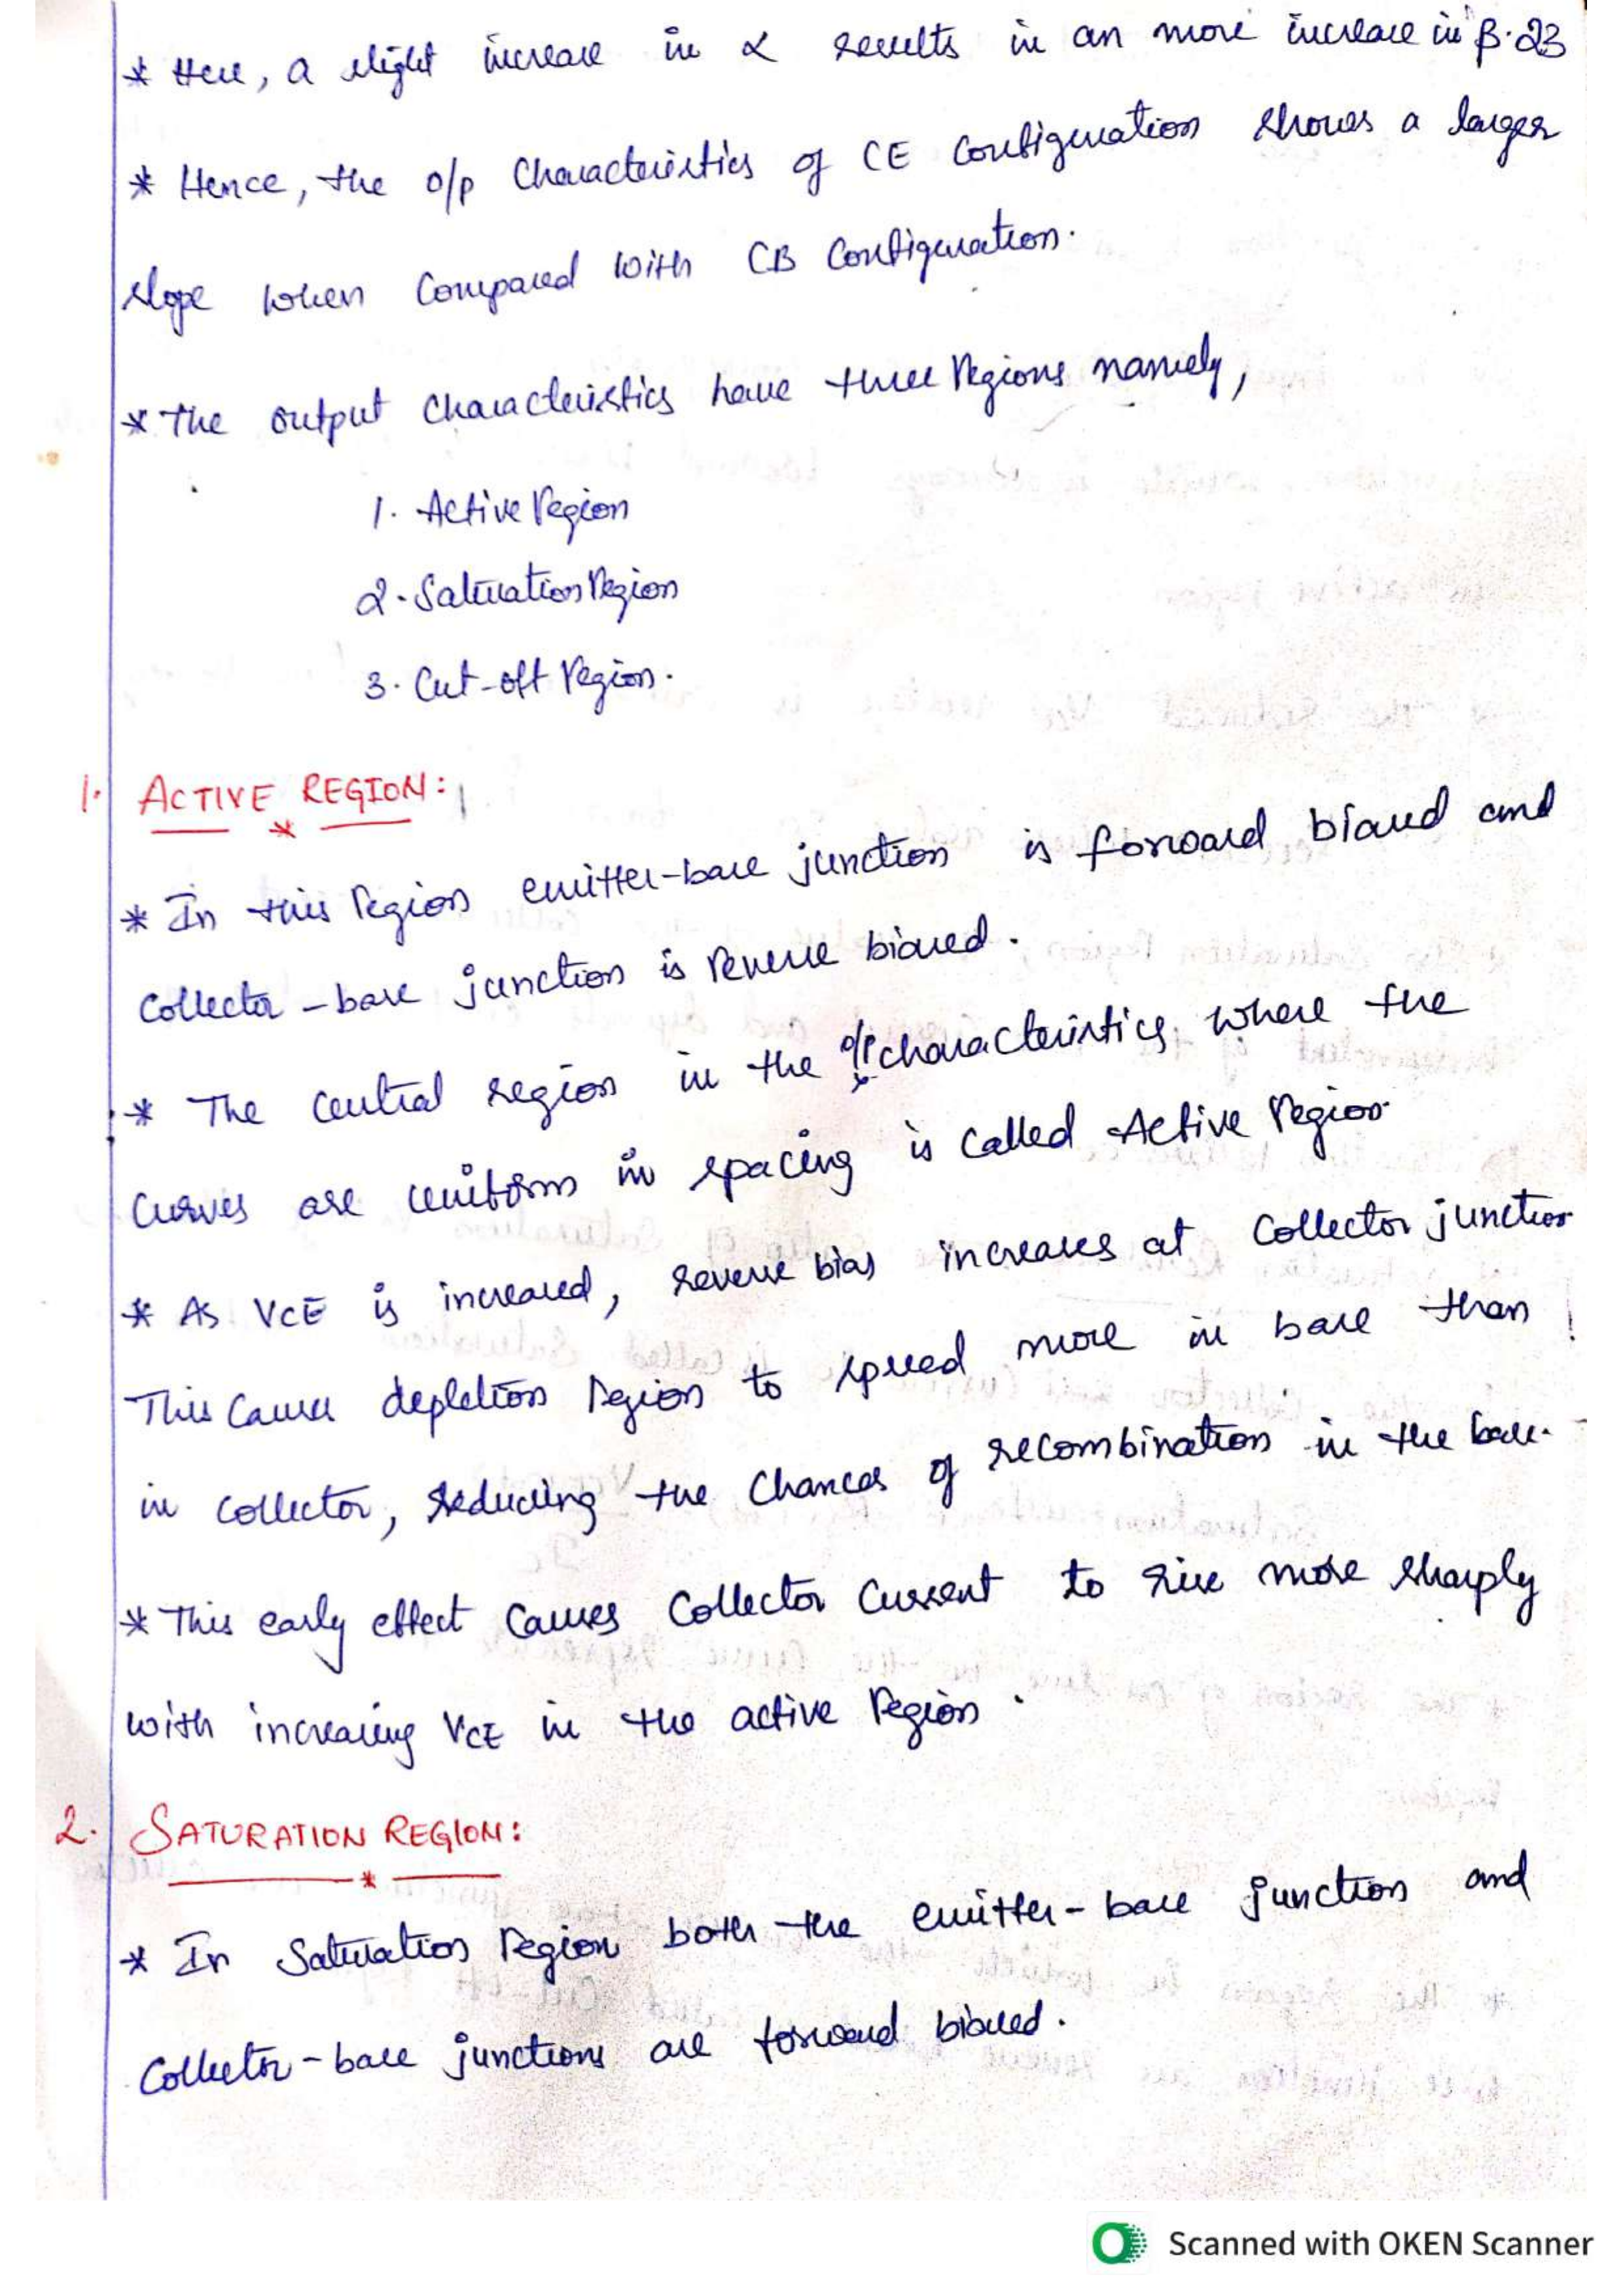 * Here, a slight increase in α results in an more increase in β. 23
* Hence, the o/p Characteristics of CE Configuration shows a larger
slope when Compared with CB Configuration.
* The output Characteristics have three regions namely,
1. Active region
2. Saturation region
3. Cut-off region.
1. ACTIVE REGION:
* In this region emitter-base junction is forward biased and
Collector-base junction is reverse biased.
* The central region in the o/p characteristics, where the
curves are uniform in spacing is called Active region
* As VCE is increased, reverse bias increases at Collector junction
This causes depletion region to spread more in base than
in collector, reducing the chances of recombination in the base.
* This early effect causes Collector Current to rise more sharply
with increasing VCE in the active region.
2. SATURATION REGION:
* In Saturation region both the emitter-base junction and
Collector-base junctions are forward biased.
Scanned with OKEN Scanner